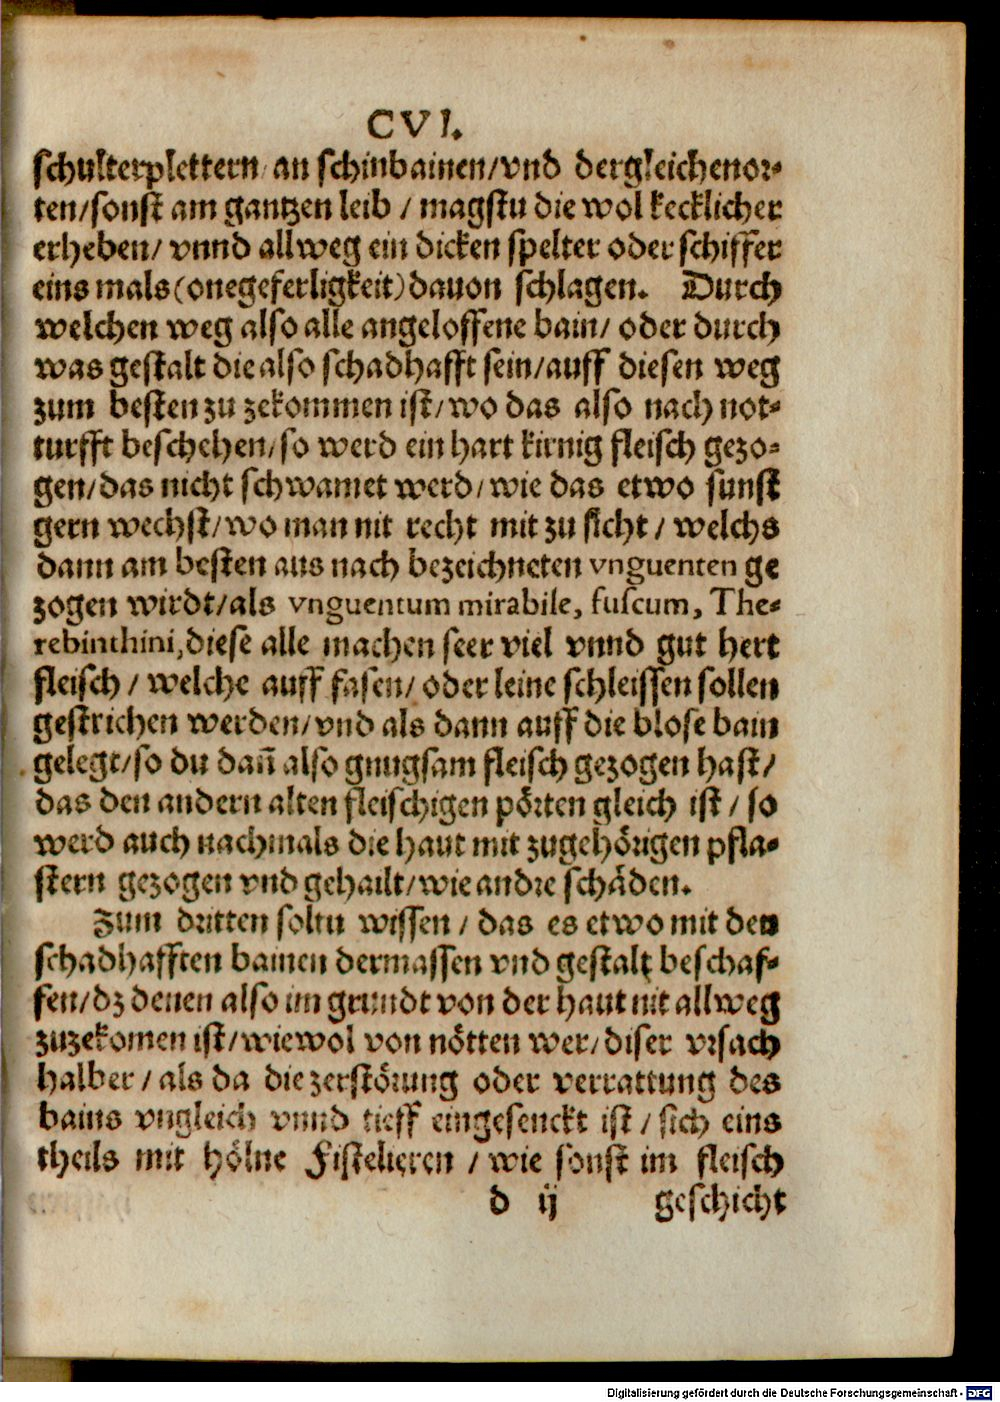 CVI.
schulterplettern/ an schinbainen/vnd dergleichenor-
ten/sonst am gantzen leib / magstu die wol kecklicher
erheben/ vnnd allweg ein dicken spelter oder schiffer
eins mals(onegeferligkeit)dauon schlagen. Durch
welchen weg also alle angeloffene bain/ oder durch
was gestalt die also schadhafft sein/auff diesen weg
zum besten zu zekommen ist/wo das also nach not-
turfft beschehen/so werd ein hart kirnig fleisch gezo-
gen/das nicht schwamet werd/wie das etwo sunst
gern wechst/wo man nit recht mit zu sicht / welchs
dann am besten aus nach bezeichneten vnguenten ge
zogen wirdt/als vnguentum mirabile, fuscum, The-
rebinthini,diese alle machen seer viel vnnd gut hert
fleisch / welche auff fasen/ oder leine schleissen sollen
gestrichen werden/vnd als dann auff die blose bain
gelegt/so du dañ also gnugsam fleisch gezogen hast/
das den andern alten fleischigen pörten gleich ist / so
werd auch nachmals die haut mit zugehörigen pfla-
stern gezogen vnd gehailt/wie andre schäden.
Zum dritten soltu wissen / das es etwo mit den
schadhafften bainen dermassen vnd gestalt beschaf-
fen/dz denen also im grundt von der haut nit allweg
zuzekomen ist/wiewol von nötten wer/diser vrsach
halber / als da die zerstörung oder verrattung des
bains vngleich vnnd tieff eingesenckt ist / sich eins
theils mit hölne Fistelieren / wie sonst im fleisch
d ij geschicht
Digitalisierung gefördert durch die Deutsche Forschungsgemeinschaft - DFG